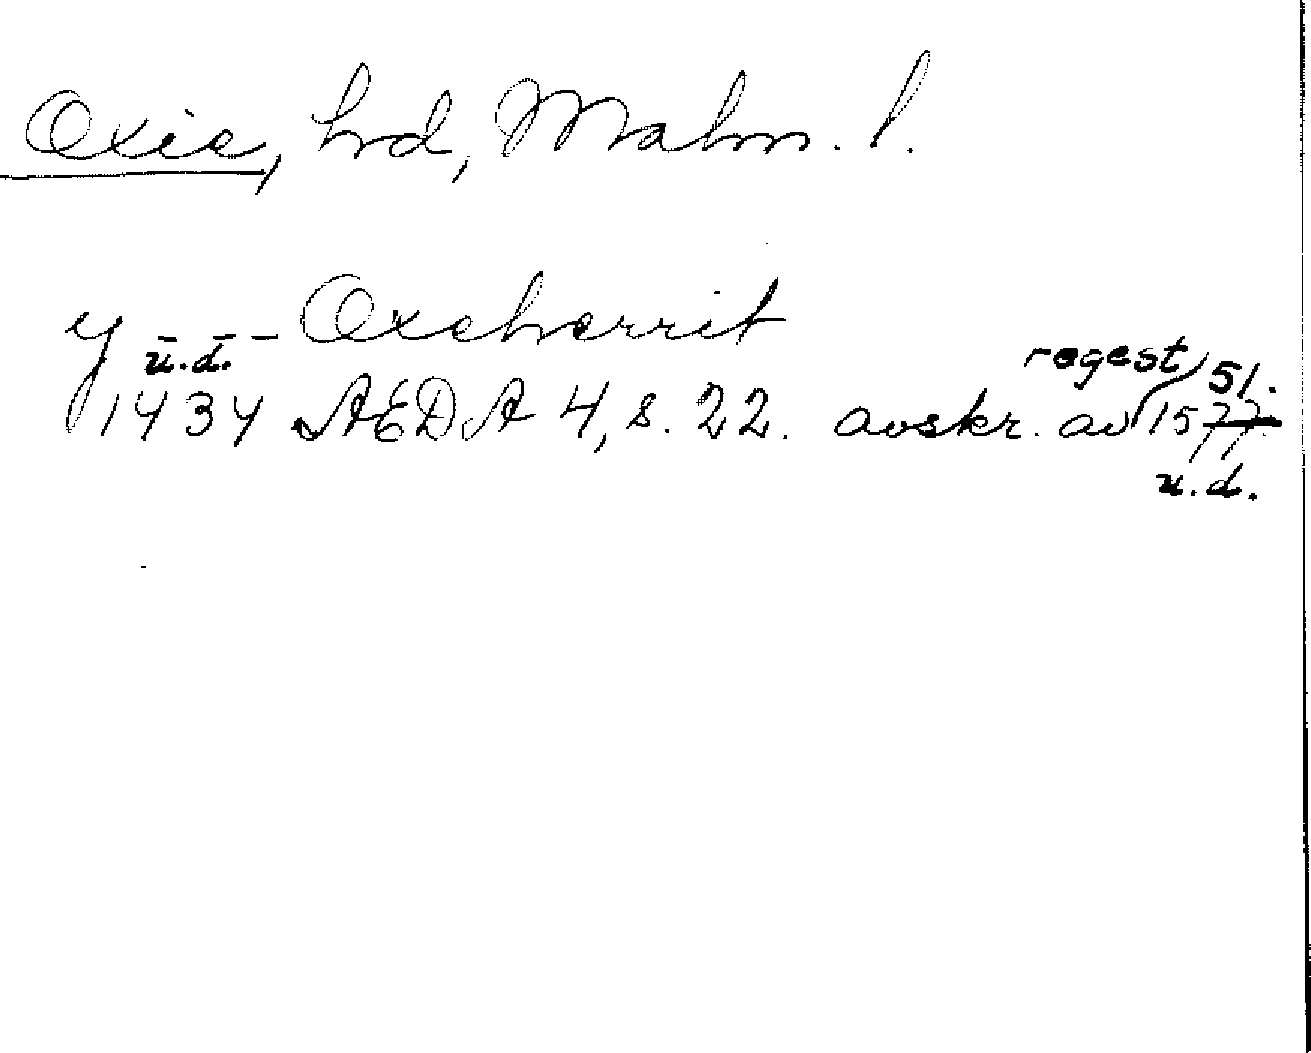 Oxie, hd, Malm. l.
y - - - Oxeherrit
u.d.
regest 51.
1434 AEDA 4, s. 22. avskr. av 1577
u.d.